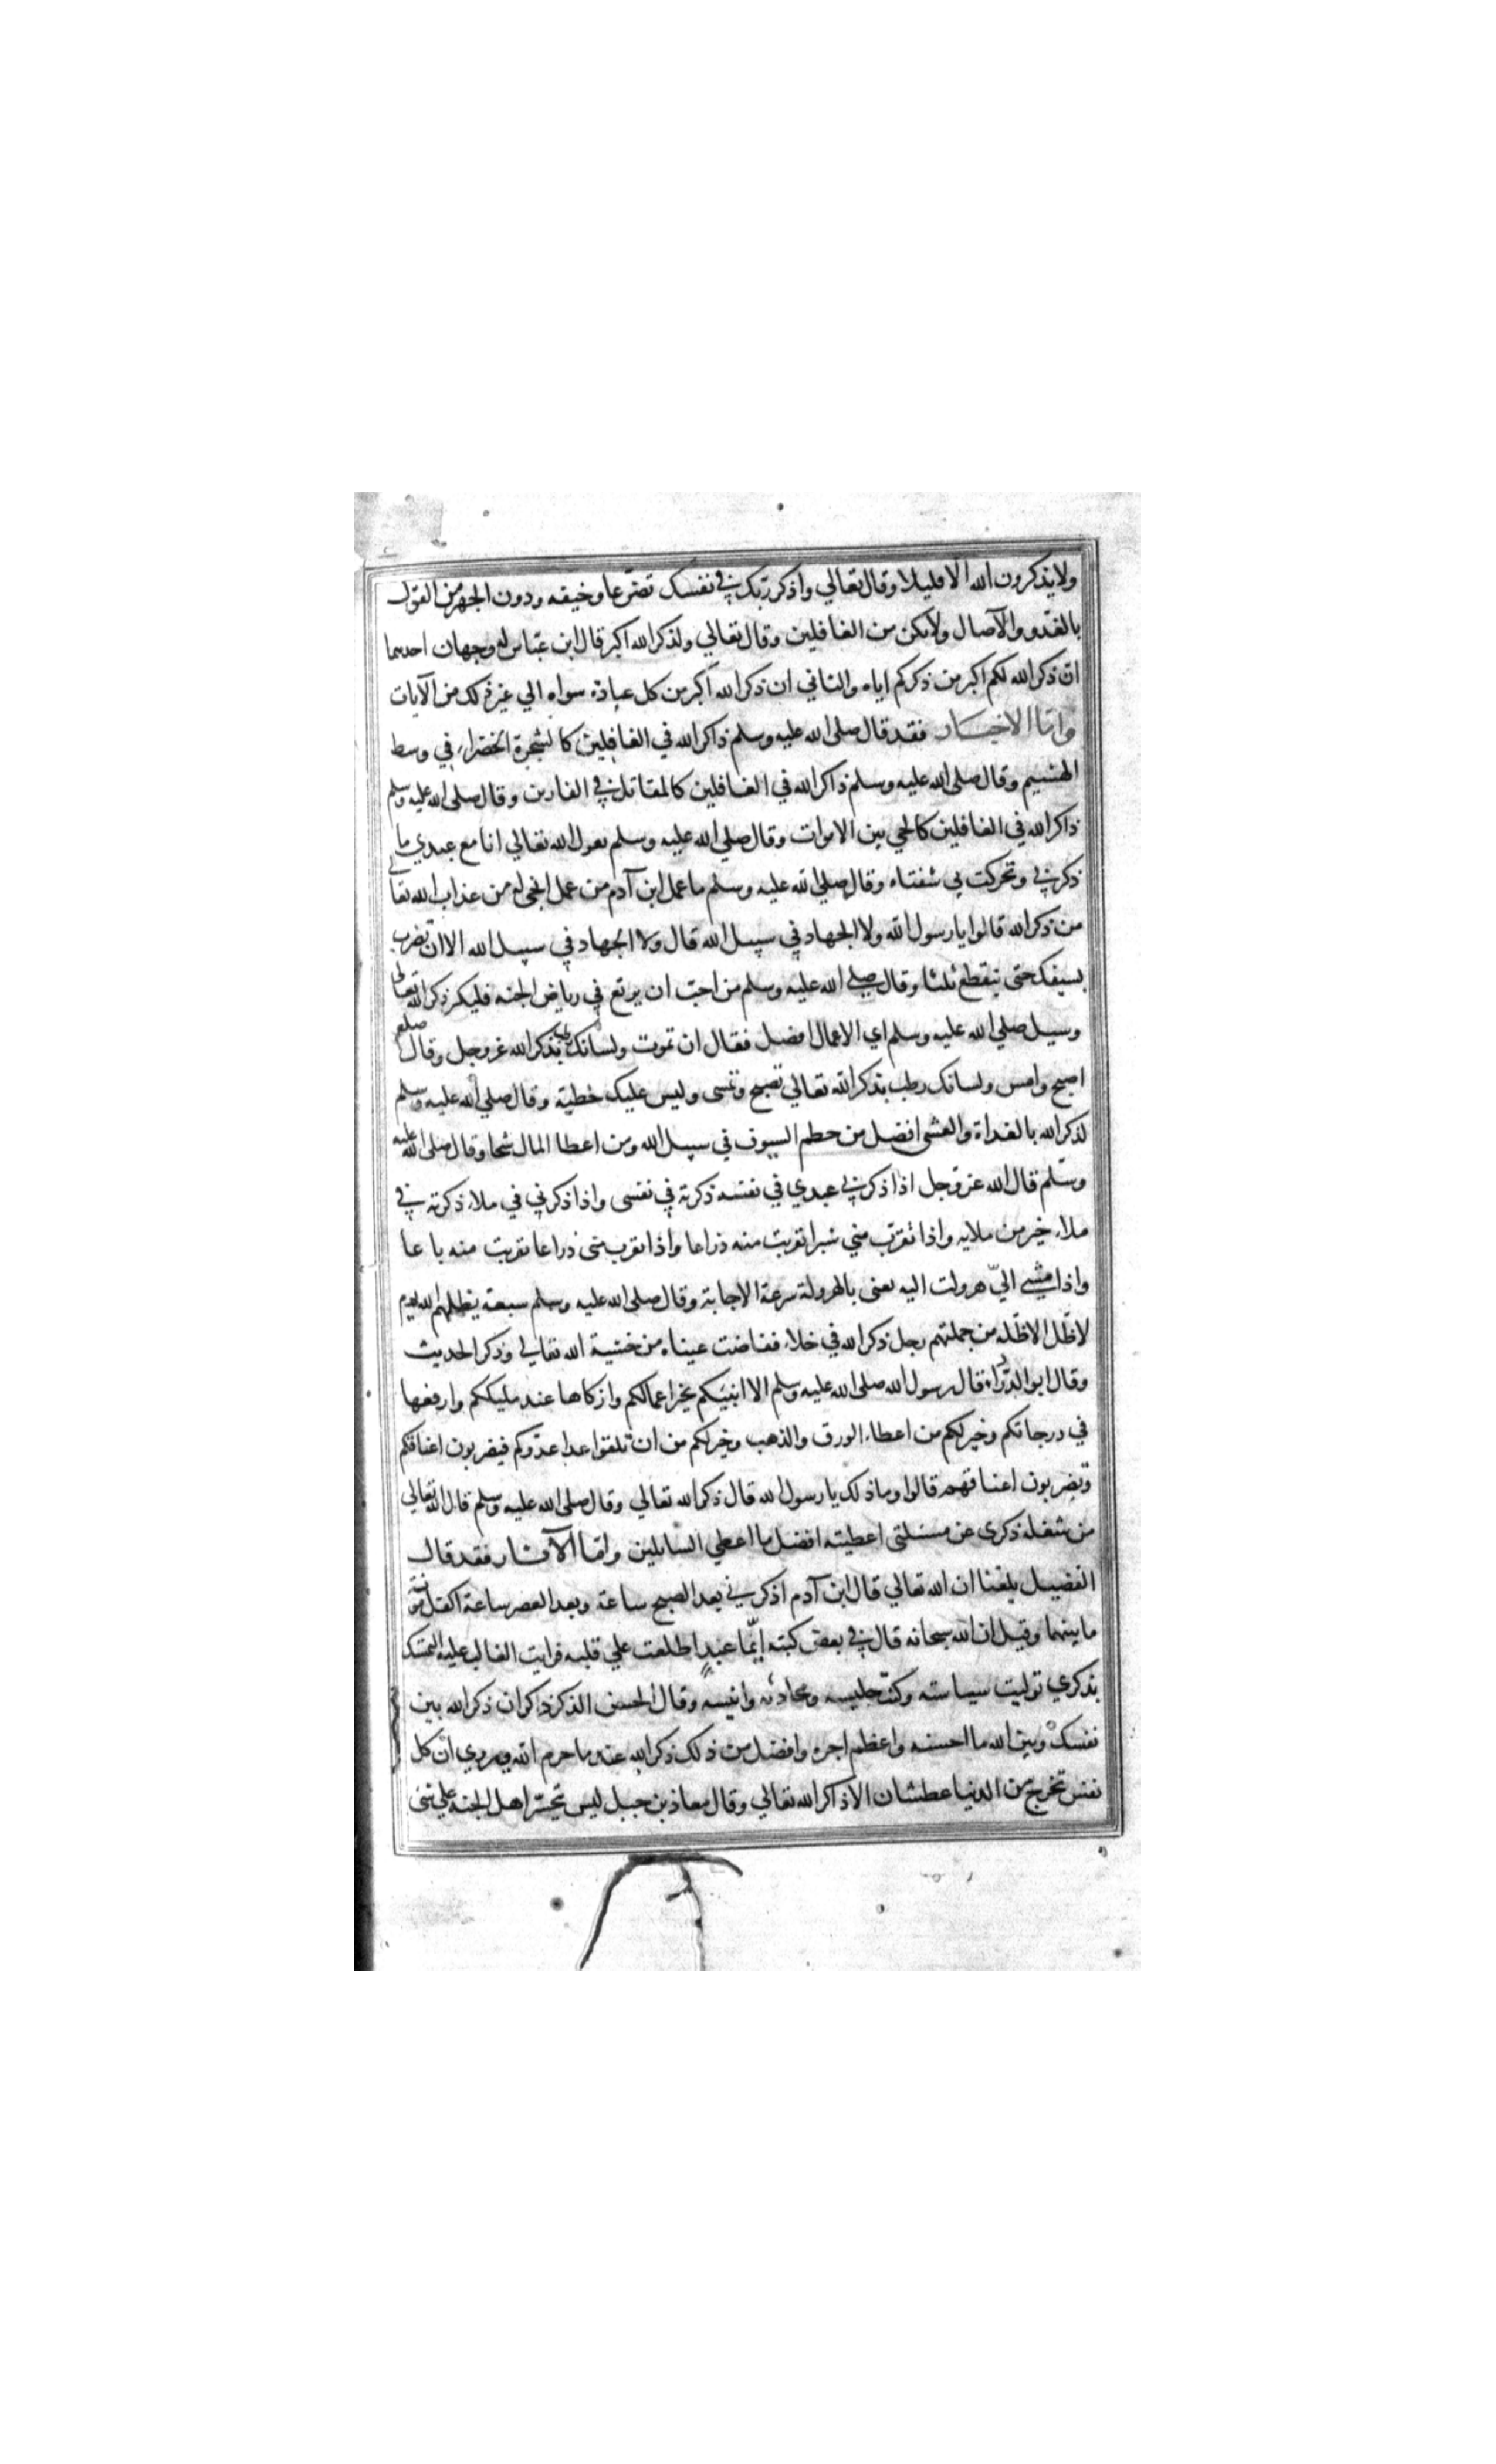 ولا يذكرون الله الا قليلا وقال تعالي واذكر ربك في نفسك تضرعا وخيفه ودون الجهر من القول
بالغدو والآصال ولا تكن من الغافلين وقال تعالي ولذكر الله اكبر قال ابن عباس له وجهان احدهما
ان ذكر الله لكم اكبر من ذكركم اياه والثاني ان ذكر الله اكبر من كل عبادة سواه الي غير ذلك من الآيات
واما الاخبار فقد قال صلى الله عليه وسلم ذاكر الله في الغافلين كالشجرة الخضراء في وسط
الهشيم وقال صلى الله عليه وسلم ذاكر الله في الغافلين كالمقاتل في الفارين وقال صلى الله عليه وسلم
ذاكر الله في الغافلين كالحي بين الاموات وقال صلي الله عليه وسلم يقول الله تعالي انا مع عبدي ما
ذكرني وتحركت بي شفتاه وقال صلي الله عليه وسلم ما عمل ابن آدم من عمل انجى له من عذاب الله تعالى
من ذكر الله قالوا يا رسول الله ولا الجهاد في سبيل الله قال ولا الجهاد في سبيل الله الا ان تضرب
بسيفك حتى ينقطع ثلثا وقال صلي الله عليه وسلم من احب ان يرتع في رياض الجنه فليكثر ذكر الله تعالى
وسيل صلي الله عليه وسلم اي الاعمال افضل فقال ان تموت ولسانك رطب بذكر الله عز وجل وقال صلعم
اصبح وامس ولسانك رطب بذكر الله تعالي تصبح وتمسى وليس عليك خطية وقال صلي الله عليه وسلم
لذكر الله بالغداة والعشى افضل من حطم السيوف في سبيل الله ومن اعطا المال سحا وقال صلى الله عليه
وسلم قال الله عز وجل اذا ذكرني عبدي في نفسه ذكرته في نفسى واذا ذكرني في ملاء ذكرته في
ملاء خير من ملايه واذا تقرب مني شبرا تقربت منه ذراعا واذا تقرب منى ذراعا تقربت منه باعا
واذا مشي الي هرولت اليه يعنى بالهرولة سرعة الاجابة وقال صلى الله عليه وسلم سبعة يظلهم الله يوم
لا ظل الا ظله من جملتهم رجل ذكر الله في خلاء ففاضت عيناه من خشية الله تعالي وذكر الحديث
وقال ابو الدرداء قال رسول الله صلى الله عليه وسلم الا انبئكم بخير اعمالكم وازكاها عند مليككم وارفعها
في درجاتكم وخير لكم من اعطاء الورق والذهب وخير لكم من ان تلقوا عدوكم فيضربون اعناقكم
وتضربون اعناقهم قالوا وما ذلك يا رسول الله قال ذكر الله تعالي وقال صلى الله عليه وسلم قال الله تعالي
من شغله ذكرى عن مسئلتى اعطيته افضل ما اعطي السايلين واما الآثار فقد قال
الفضيل بلغنا ان الله تعالي قال ابن آدم اذكرني بعد الصبح ساعة وبعد العصر ساعة اكفك مؤنة
ما بينهما وقيل ان الله سبحانه قال في بعض كتبه ايما عبد اطلعت علي قلبه فرايت الغالب عليه التمسك
بذكري توليت سياسته وكنت جليسه ومحادثه وانيسه وقال الحسن الذكر ذكران ذكر الله بين
نفسك وبين الله ما احسنه واعظم اجره وافضل من ذلك ذكر الله عند ما حرم الله ويروي ان كل
نفس تخرج من الدنيا عطشان الا ذاكر الله تعالي وقال معاذ بن جبل ليس يتحسر اهل الجنه علي شى